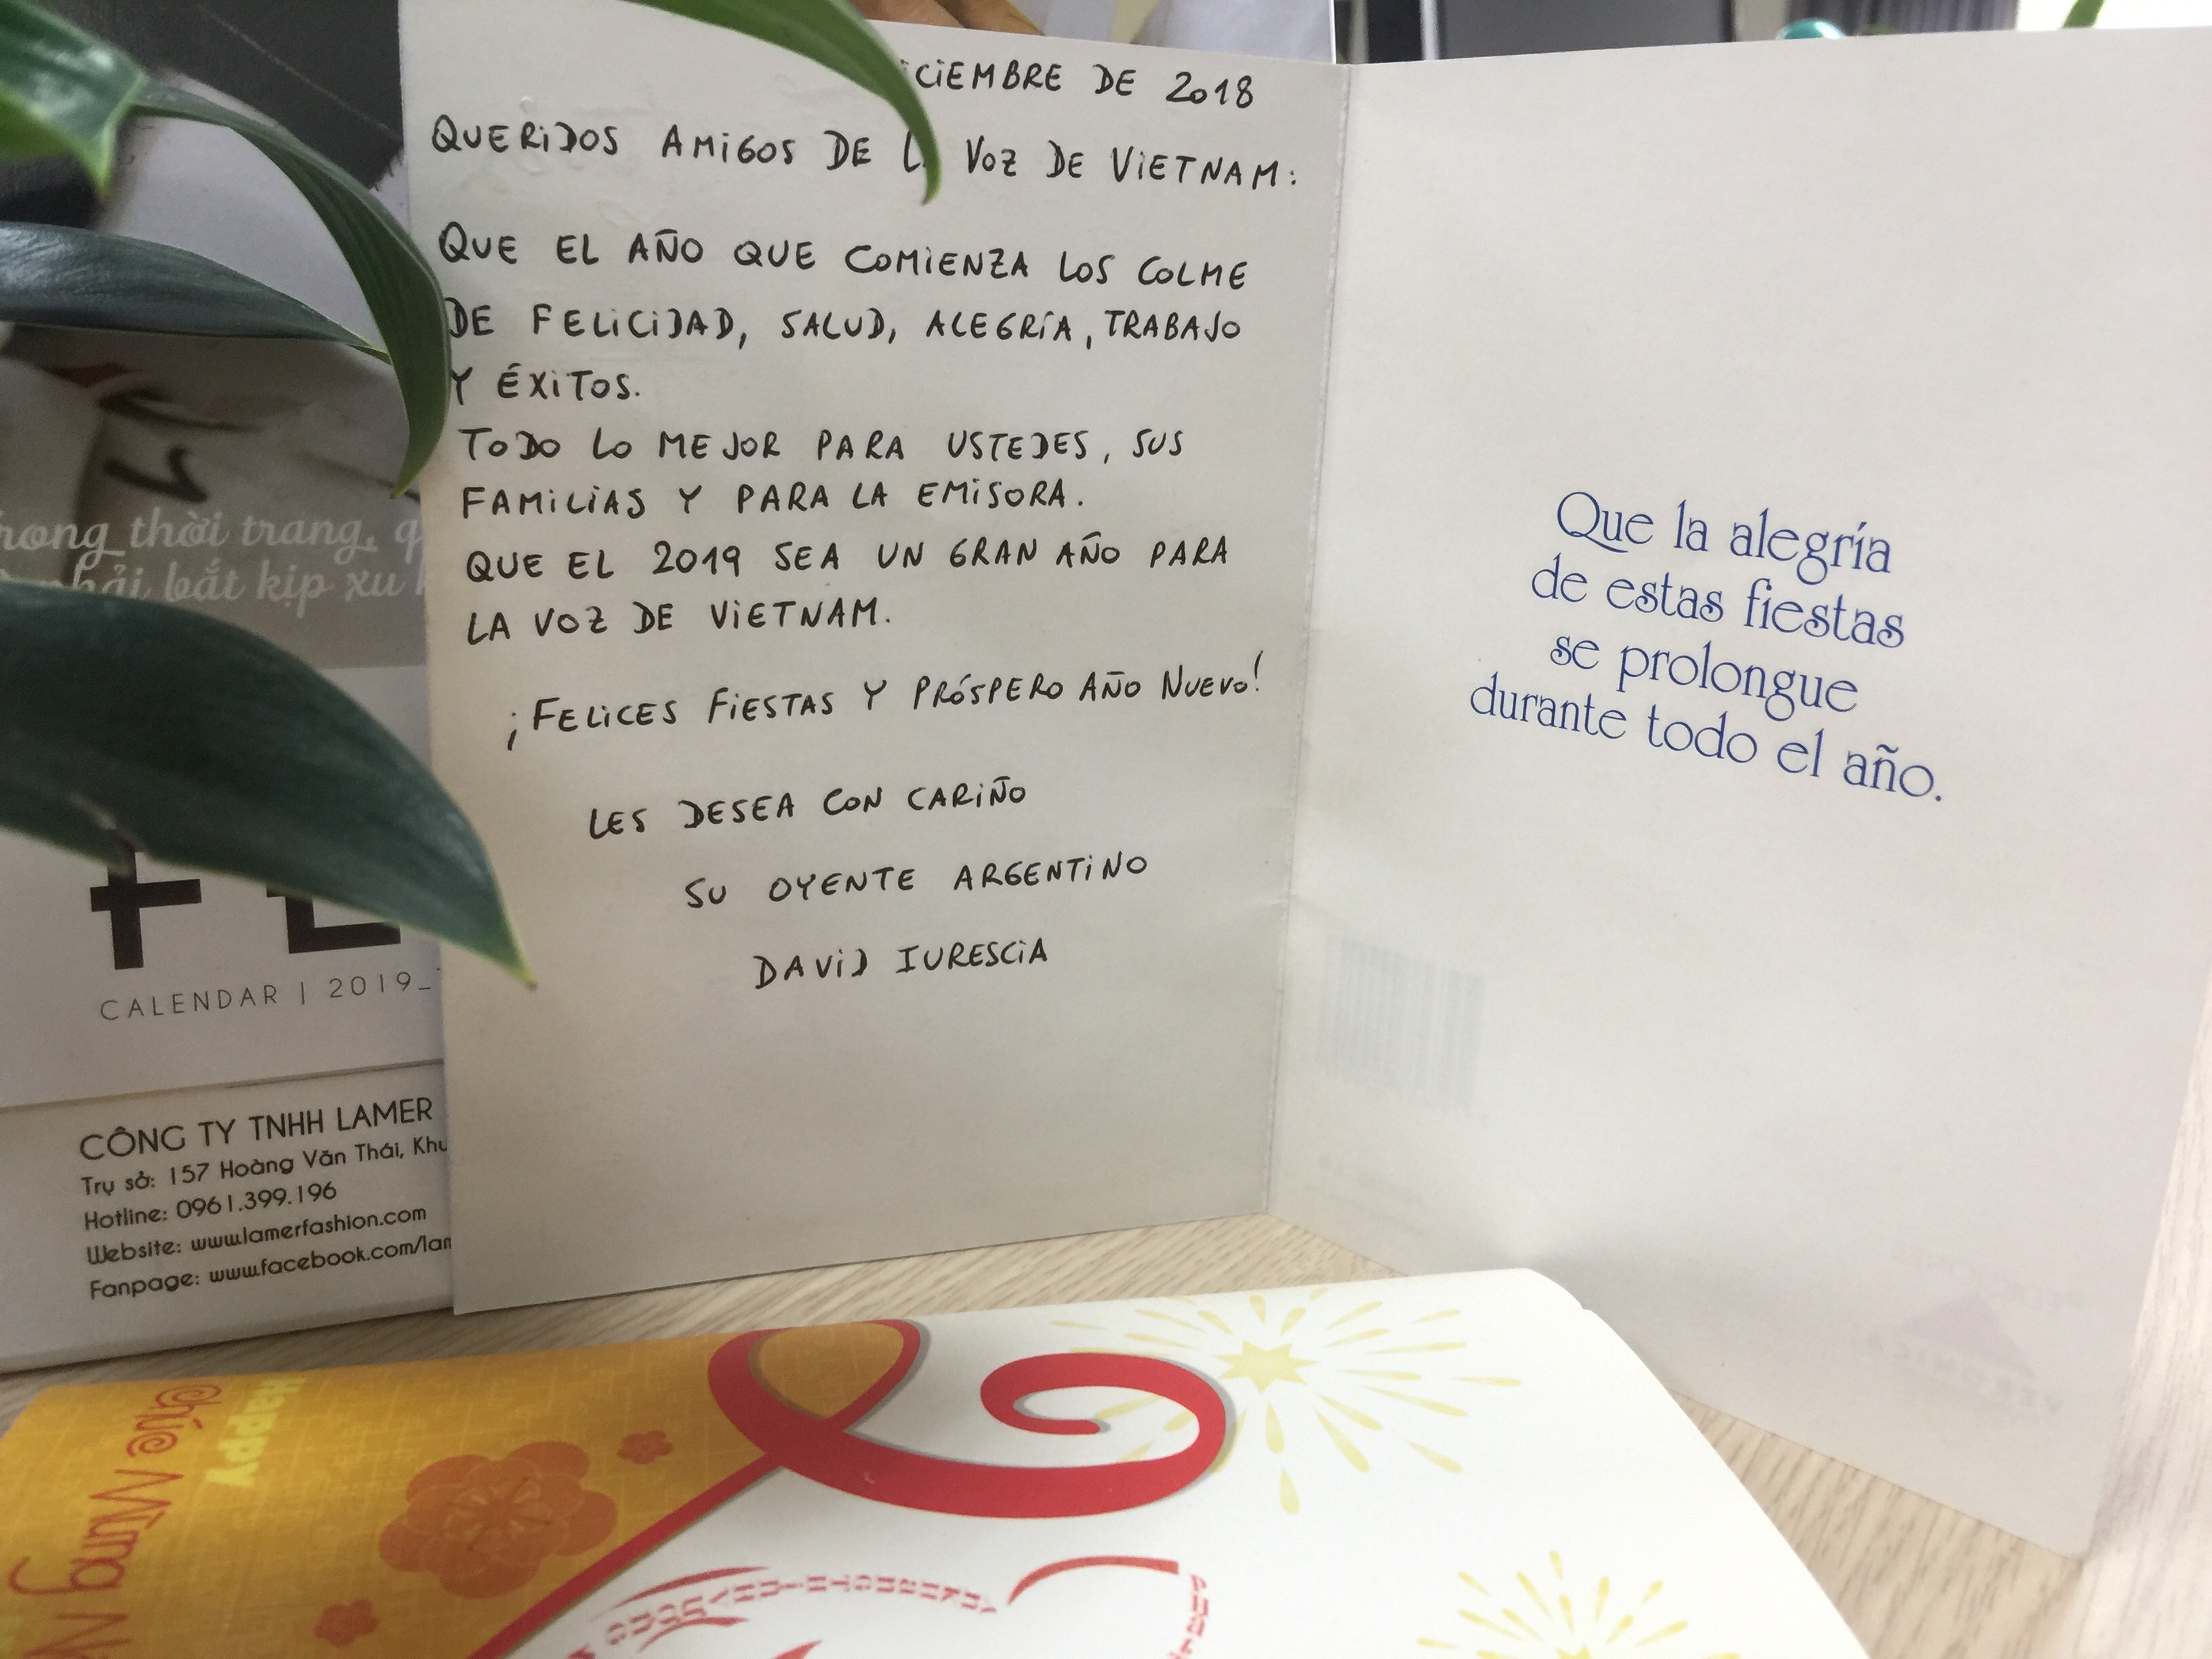 CIEMBRE DE 2018
QUERIDOS AMIGOS DE VOZ DE VIETNAM:
QUE EL AÑO QUE COMIENZA LOS COLME
DE FELICIDAD, SALUD, ALEGRÍA, TRABAJO
Y ÉXITOS.
TODO LO MEJOR PARA USTEDES, SUS
FAMILIAS Y PARA LA EMISORA.
QUE EL 2019 SEA UN GRAN AÑO PARA
LA VOZ DE VIETNAM.
¡FELICES FIESTAS Y PRÓSPERO AÑO NUEVO!
LES DESEA CON CARIÑO
SU OYENTE ARGENTINO
DAVID IURESCIA
Que la alegría
de estas fiestas
se prolongue
durante todo el año.
thời trang,
bắt kịp xu
CALENDAR | 2019_
CÔNG TY TNHH LAMER
Trụ sở: 157 Hoàng Văn Thái, Khu
Hotline: 0961.399.196
Website: www.lamerfashion.com
Fanpage: www.facebook.com/lam
Happy
Chúc Mừng N